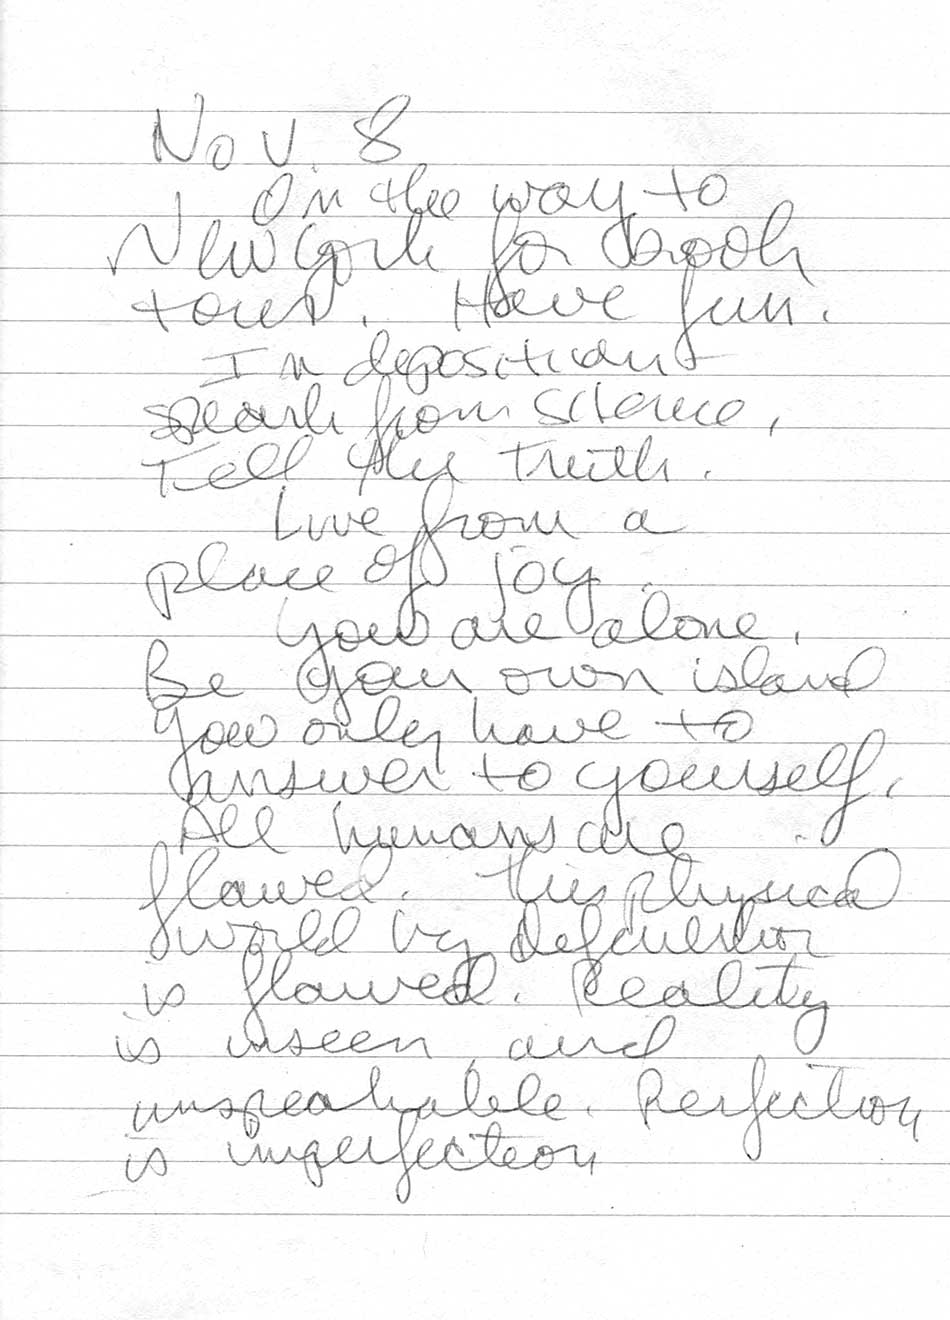 Nov. 8
On the way to
New York for book
tour. Have fun.
In deposition
speak from science,
Tell the truth.
Live from a
place of joy.
You are alone.
Be your own island
You only have to
answer to yourself.
All humans are
flawed. This physical
world by definition
is flawed. Reality
is unseen and
unspeakable. Perfection
is imperfection